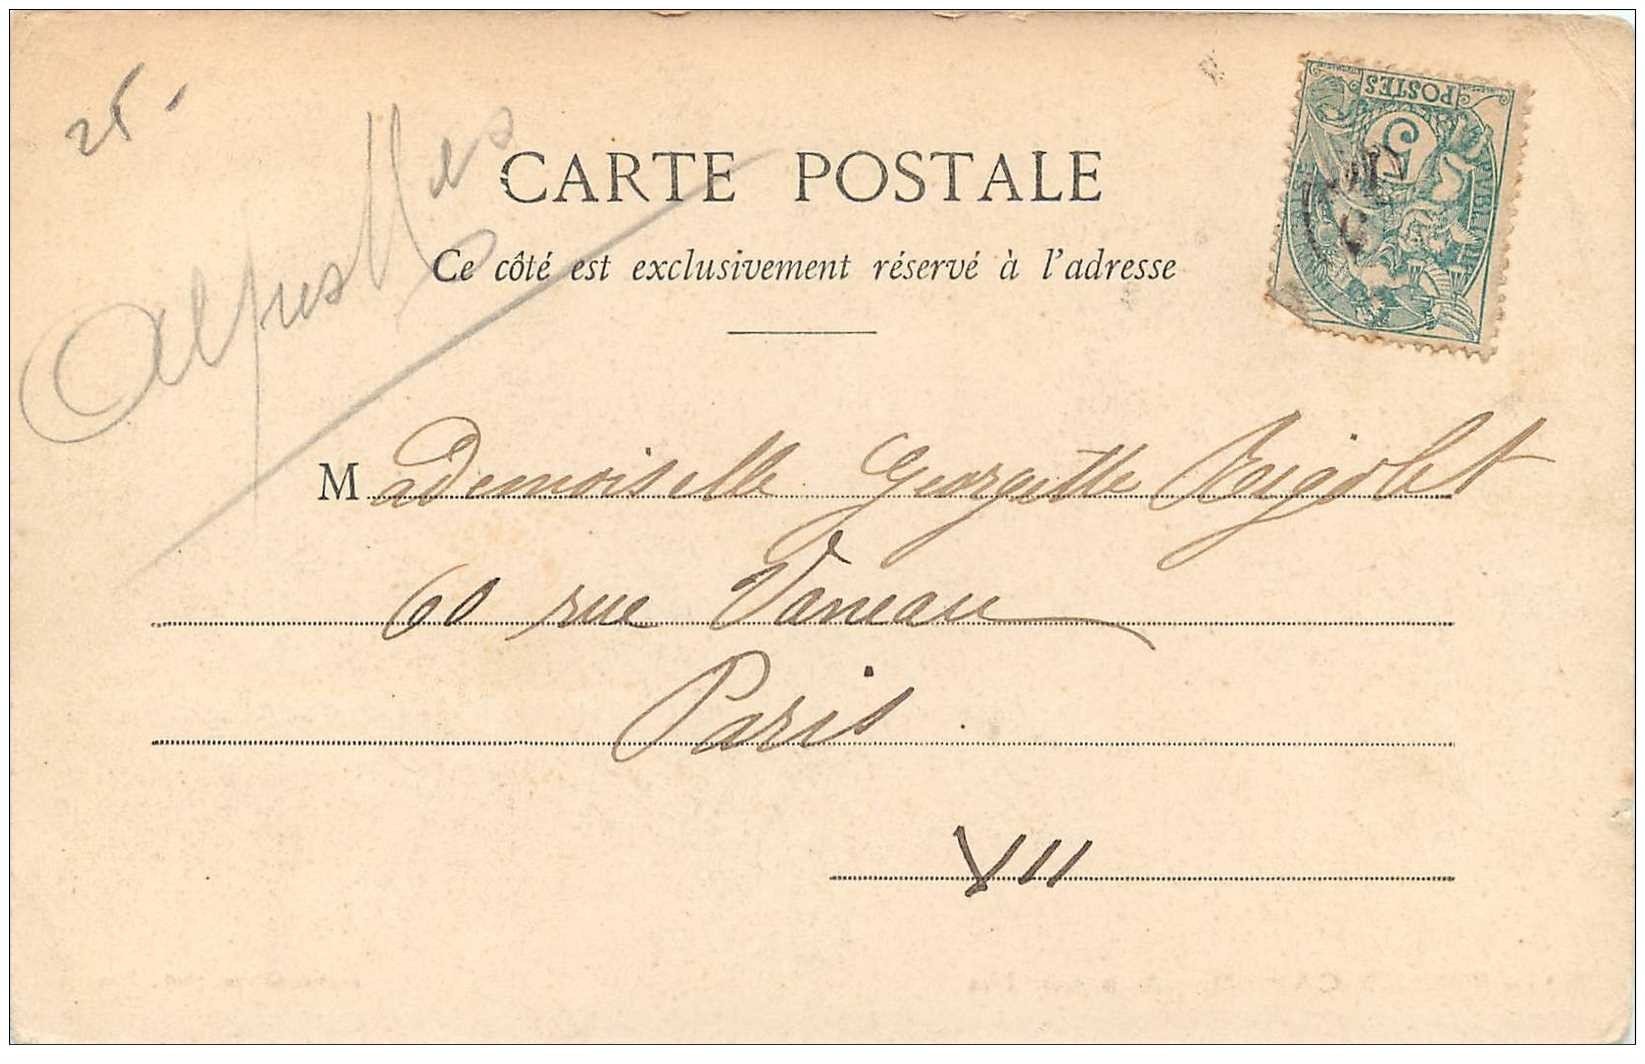 25-
CARTE POSTALE
Ce côté est exclusivement réservé à l'adresse
POSTES
5
Mademoiselle Georgette Rigolet
60 rue Vaneau
Paris
VII